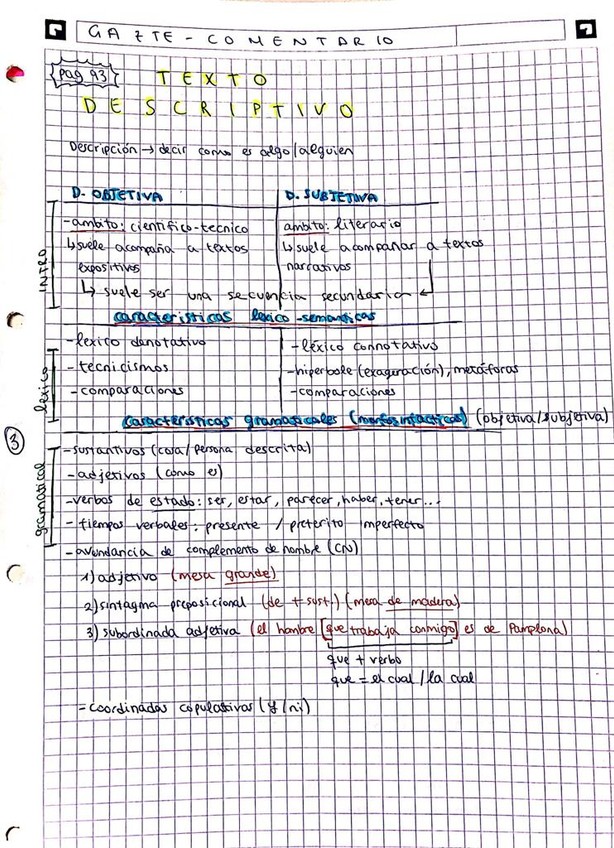 GAZTE - COMENTARIO
pag 93
TEXTO
DESCRIPTIVO
Descripción → decir como es algo/alguien
D. OBJETIVA
D. SUBJETIVA
INTRO
-ambito: científico-tecnico
ambito: literario
↳ suele acompaña a textos
↳ suele acompañar a textos
expositivos
narrativos
↳ suele ser una secuencia secundaria
características lexico-semanticas
léxico
-lexico denotativo
-léxico connotativo
-tecnicismos
-hiperbole (exageración), metáforas
-comparaciones
-comparaciones
características gramaticales (morfosintacticas) (objetiva/subjetiva)
3
gramatical
-sustantivos (cosa/persona descrita)
-adjetivos (como es)
-verbos de estado: ser, estar, parecer, haber, tener...
-tiempos verbales: presente / preterito imperfecto
-avundancia de complemento de nombre (CN)
1) adjetivo (mesa grande)
2) sintagma preposicional (de + sust.) (mesa de madera)
3) subordinada adjetiva (el hombre [que trabaja conmigo] es de Pamplona)
que + verbo
que = el cual / la cual
-coordinadas copulativas (y/ni)